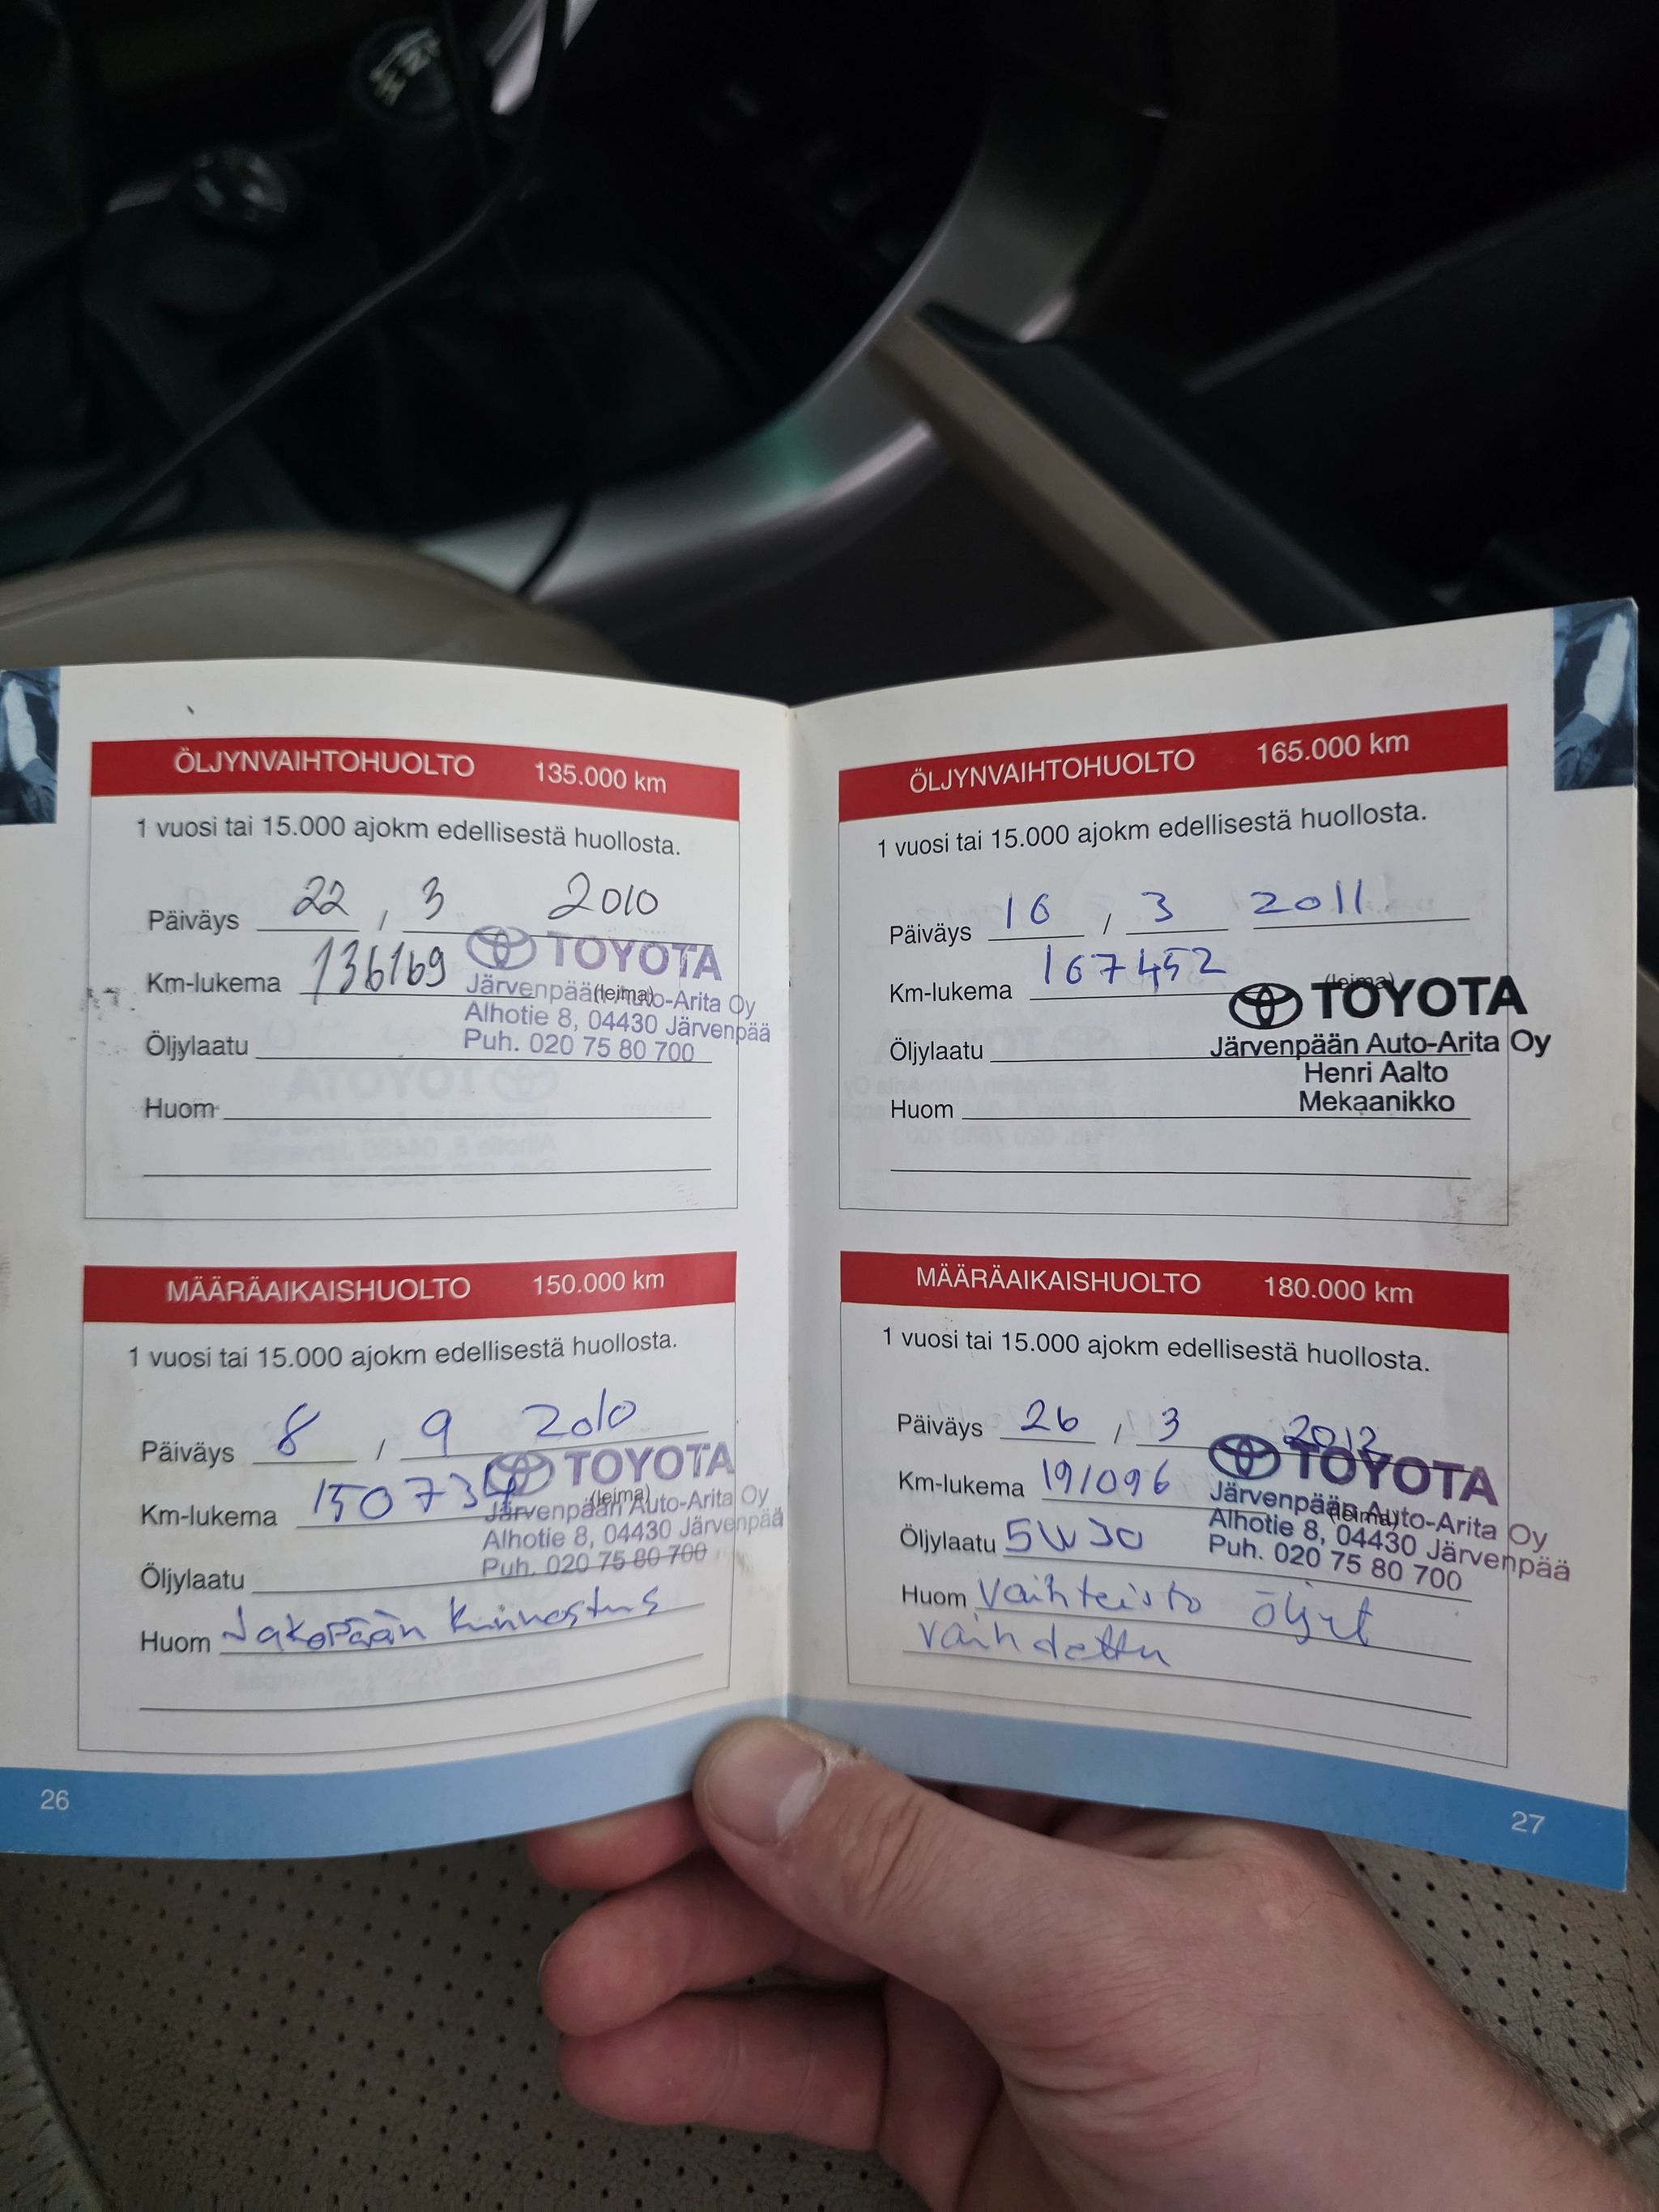 ÖLJYNVAIHTOHUOLTO 135.000 km
1 vuosi tai 15.000 ajokm edellisestä huollosta.
Päiväys 22 / 3 2010
Km-lukema 136169
(leima)
TOYOTA
Järvenpään Auto-Arita Oy
Alhotie 8, 04430 Järvenpää
Puh. 020 75 80 700
Öljylaatu
Huom
MÄÄRÄAIKAISHUOLTO 150.000 km
1 vuosi tai 15.000 ajokm edellisestä huollosta.
Päiväys 8 / 9 2010
Km-lukema 150734
(leima)
TOYOTA
Järvenpään Auto-Arita Oy
Alhotie 8, 04430 Järvenpää
Puh. 020 75 80 700
Öljylaatu
Huom Jakopään kunnostus
26
ÖLJYNVAIHTOHUOLTO 165.000 km
1 vuosi tai 15.000 ajokm edellisestä huollosta.
Päiväys 16 / 3 2011
Km-lukema 167452
(leima)
TOYOTA
Järvenpään Auto-Arita Oy
Henri Aalto
Mekaanikko
Öljylaatu
Huom
MÄÄRÄAIKAISHUOLTO 180.000 km
1 vuosi tai 15.000 ajokm edellisestä huollosta.
Päiväys 26 / 3 2012
Km-lukema 191096
(leima)
TOYOTA
Järvenpään Auto-Arita Oy
Alhotie 8, 04430 Järvenpää
Puh. 020 75 80 700
Öljylaatu 5W30
Huom Vaihteisto öljyt
vaihdettu
27